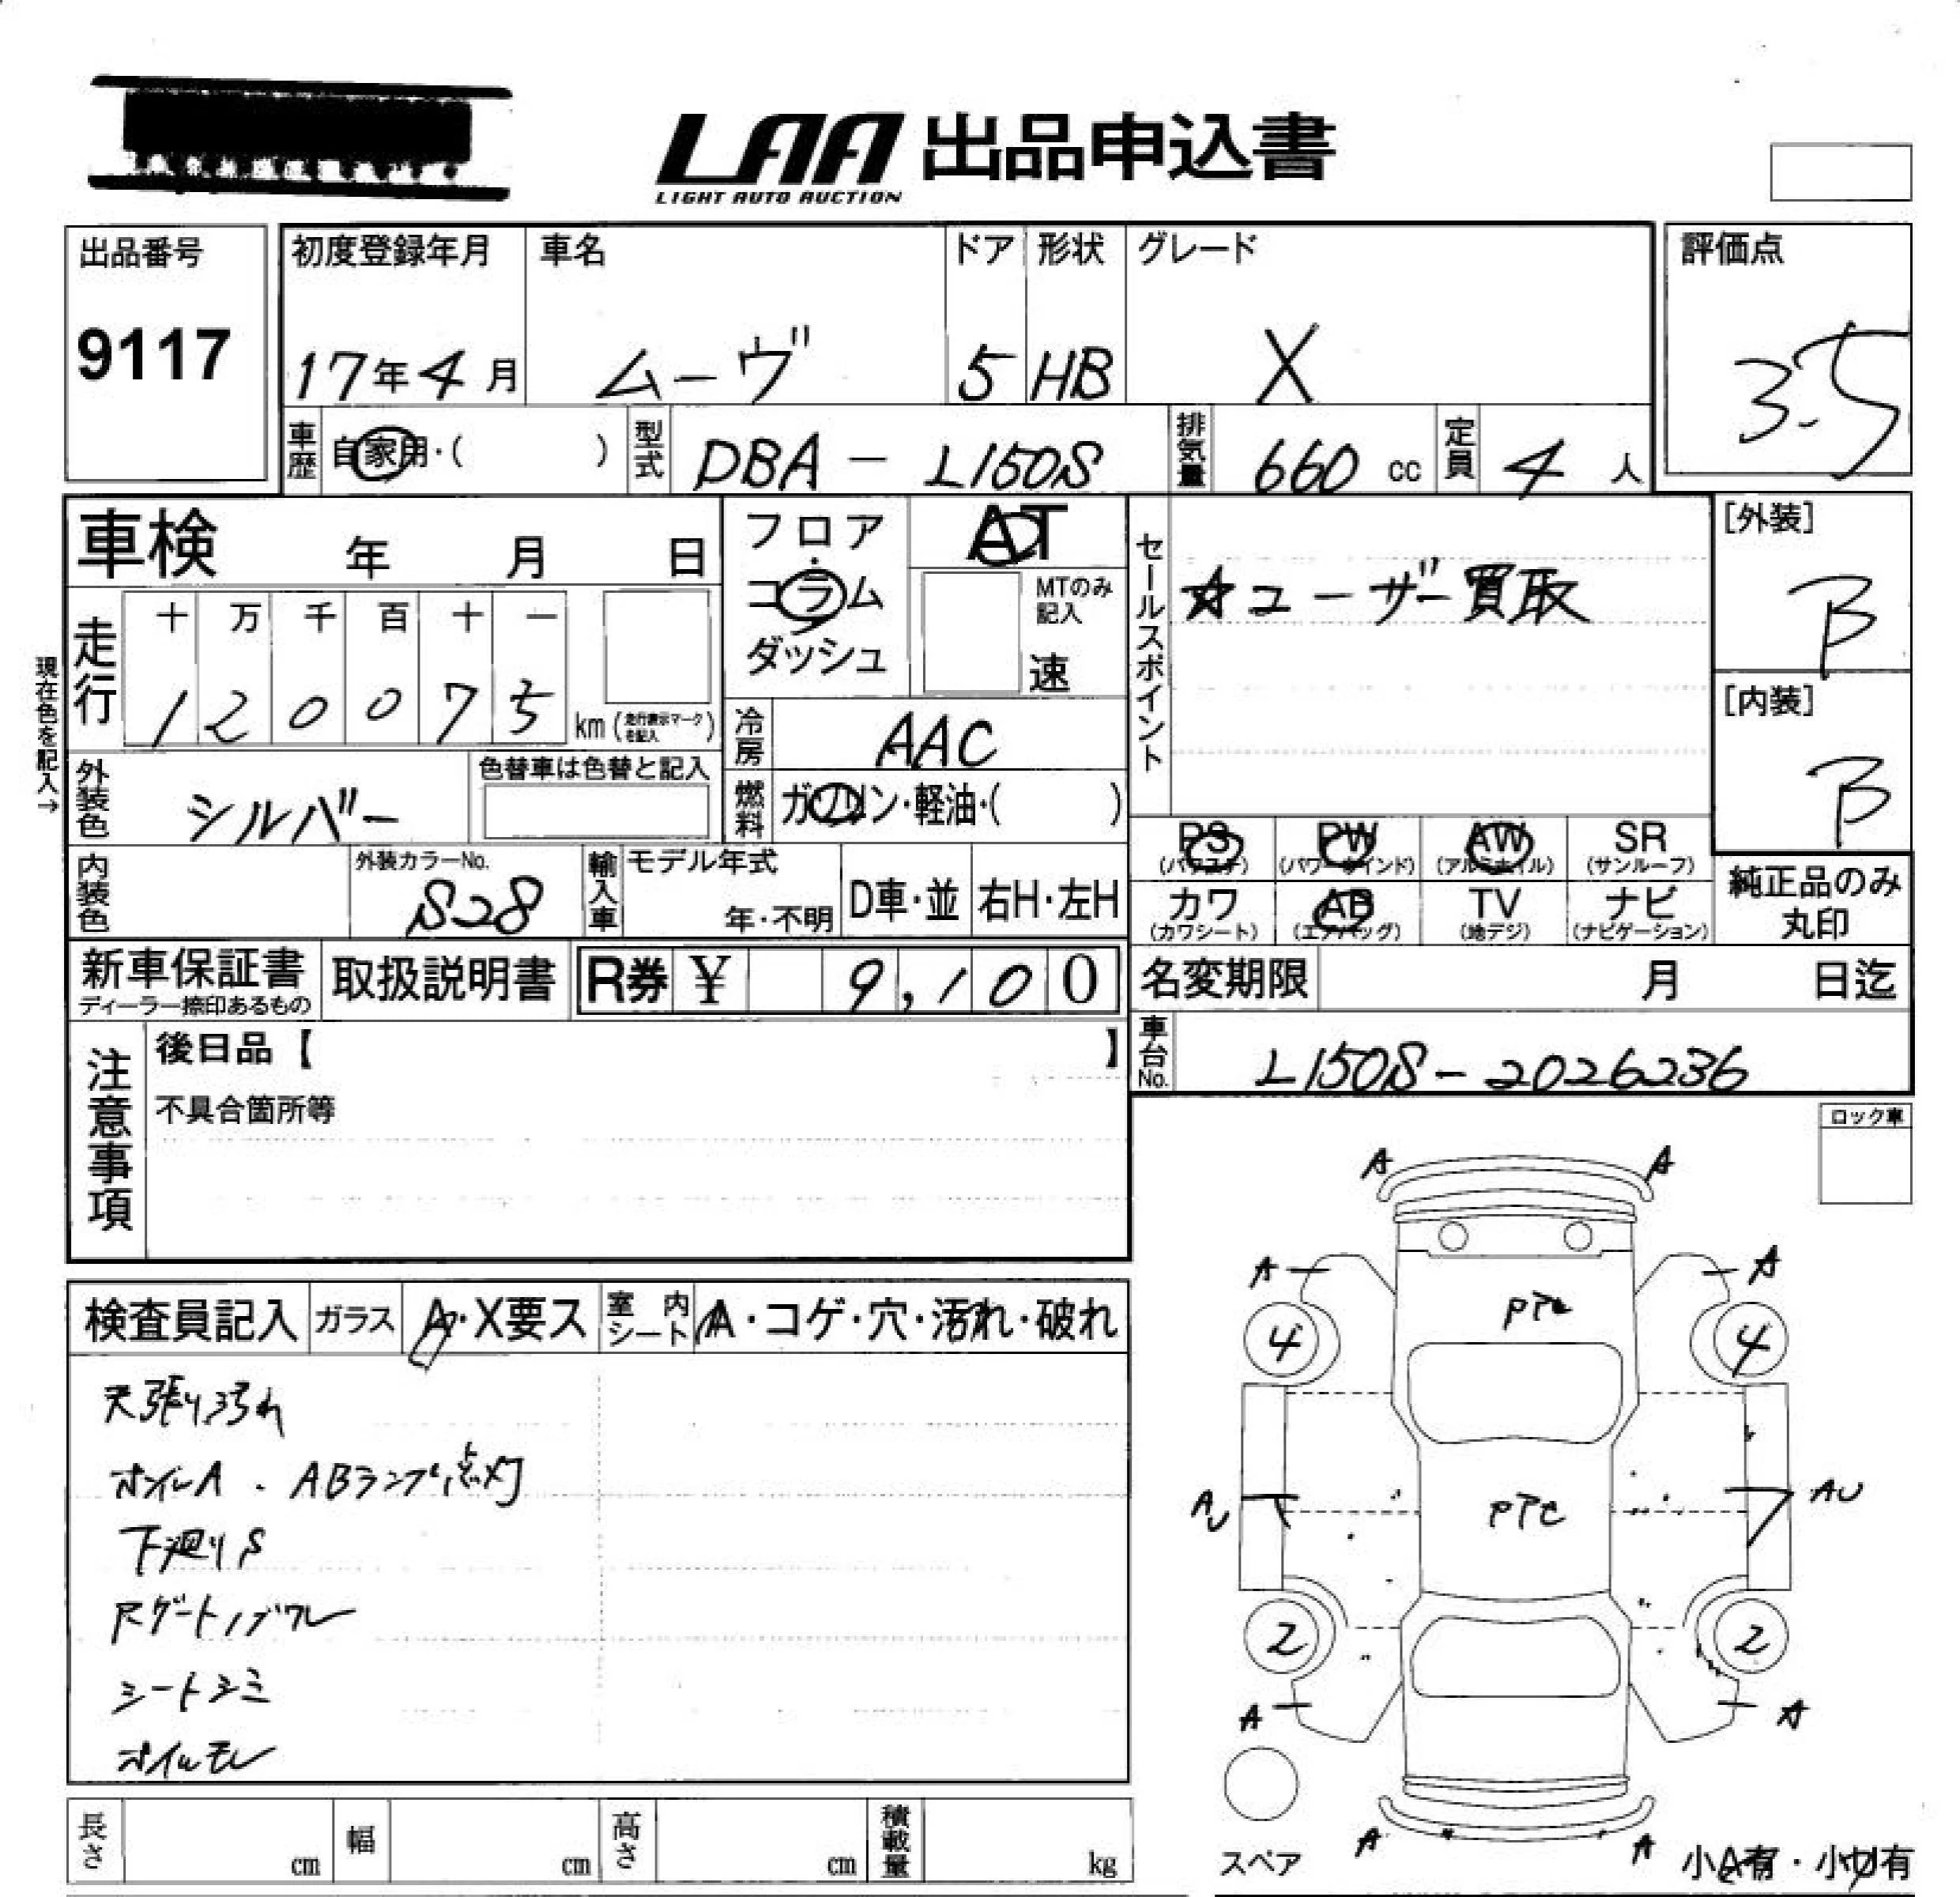 LAA 出品申込書
LIGHT AUTO AUCTION
出品番号 初度登録年月 車名 ドア 形状 グレード 評価点
9117 17年4月 ムーヴ 5 HB X 3.5
車歴 自家用・( ) 型式 DBA - L150S 排気量 660 cc 定員 4 人
車検 年 月 日 フロア・コラム ダッシュ AT セールスポイント [外装]
MTのみ記入 速 ☆ユーザー買取 B
走行 十 万 千 百 十 一
1 2 0 0 7 5 km (走行表示マークを記入)
[内装]
B
現在色を記入→
冷房 AAC
外装色 シルバー 色替車は色替と記入 燃料 ガソリン・軽油・( )
PS PW AW SR
(パワステ) (パワーウインド) (アルミホイル) (サンルーフ)
内装色 外装カラーNo. S28 輸入車 モデル年式 年・不明 D車・並 右H・左H
カワ AB TV ナビ
(カワシート) (エアバッグ) (地デジ) (ナビゲーション)
純正品のみ
丸印
新車保証書 取扱説明書 R券 ¥ 9,100 名変期限 月 日迄
ディーラー捺印あるもの
注意事項 後日品【 】 車台No. L150S-2026236
不具合箇所等
ロック車
A A
A A
PTC
4 4
検査員記入 ガラス A・X要ス 室内シート A・コゲ・穴・汚れ・破れ
天張り汚れ
オイルA . ABランプ点灯
下廻りS
Rゲートノブワレ
シートシミ
オイルモレ
AU PTC AU
2 2
A A
スペア A A 小A有・小U有
長さ cm 幅 cm 高さ cm 積載量 kg